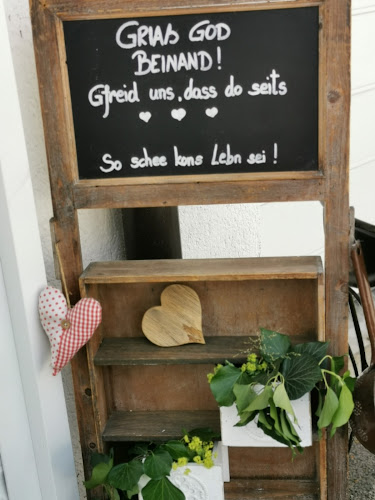 Griaß God
beinand!
Gfreid uns, dass do seits
So schee kons Lebn sei!